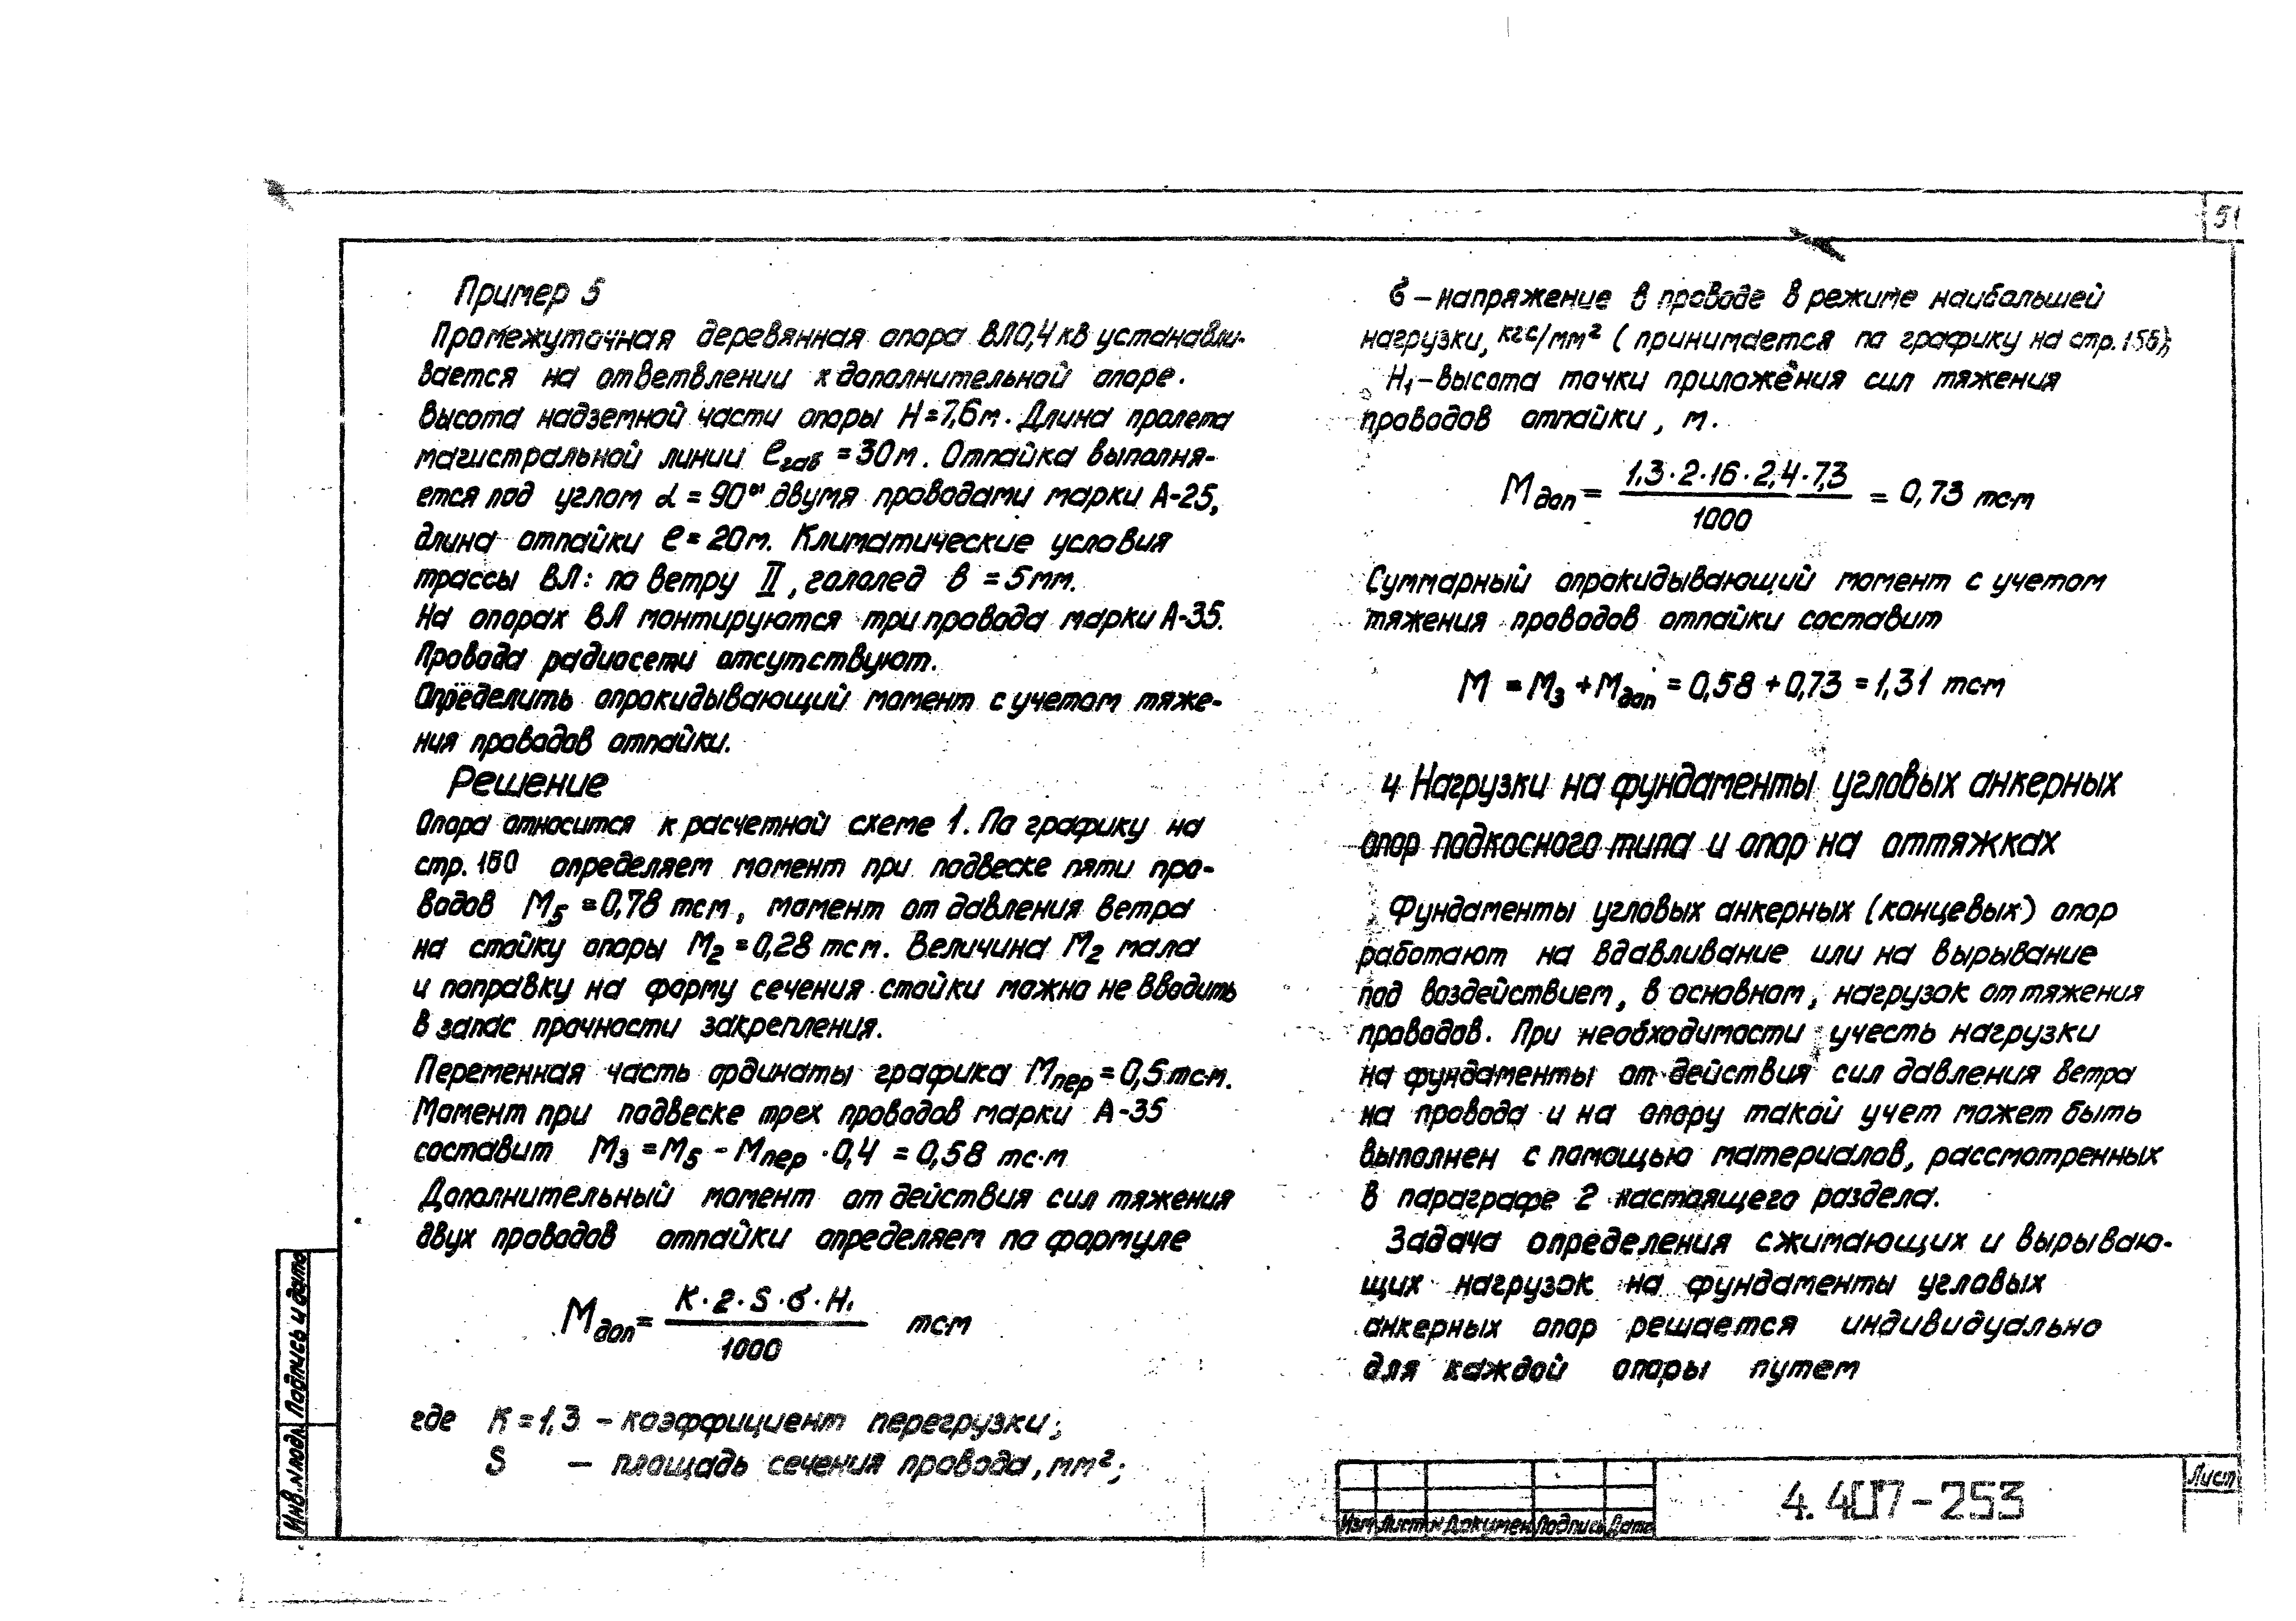 51
Пример 5
Промежуточная деревянная опора ВЛ0,4кв устанавли-
вается на ответвлении к дополнительной опоре.
Высота надземной части опоры H=7,6м. Длина пролета
магистральной линии ℓгав =30м. Отпайка выполня-
ется под углом α = 90° двумя проводами марки А-25,
длина отпайки ℓ=20м. Климатические условия
трассы ВЛ: по ветру II, гололед в =5мм.
На опорах ВЛ монтируются три провода марки А-35.
Провода радиосети отсутствуют.
Определить опрокидывающий момент с учетом тяже-
ния проводов отпайки.
Решение
Опора относится к расчетной схеме 1. По графику на
стр. 160 определяем момент при подвеске пяти про-
водов M5 =0,78 тсм, момент от давления ветра
на стойку опоры M2=0,28 тсм. Величина M2 мала
и поправку на форму сечения стойки можно не вводить
в запас прочности закрепления.
Переменная часть ординаты графика Mпер=0,5тсм.
Момент при подвеске трех проводов марки А-35
составит M3=M5-Mпер·0,4=0,58 тс·м
Дополнительный момент от действия сил тяжения
двух проводов отпайки определяем по формуле
Mдоп= K·2·S·σ·H1 / 1000 тсм
где K=1,3 - коэффициент перегрузки;
S - площадь сечения провода, мм²;
σ - напряжение в проводе в режиме наибольшей
нагрузки, кгс/мм² (принимается по графику на стр. 156);
H1-высота точки приложения сил тяжения
проводов отпайки, м.
Mдоп= 1,3·2·16·2,4·7,3 / 1000 = 0,73 тс·м
Суммарный опрокидывающий момент с учетом
тяжения проводов отпайки составит
M = M3 + Mдоп = 0,58 + 0,73 = 1,31 тс·м
4 Нагрузки на фундаменты угловых анкерных
опор подкосного типа и опор на оттяжках
Фундаменты угловых анкерных (концевых) опор
работают на вдавливание или на вырывание
под воздействием, в основном, нагрузок от тяжения
проводов. При необходимости учесть нагрузки
на фундаменты от действия сил давления ветра
на провода и на опору такой учет может быть
выполнен с помощью материалов, рассмотренных
в параграфе 2 настоящего раздела.
Задача определения сжимающих и вырываю-
щих нагрузок на фундаменты угловых
анкерных опор решается индивидуально
для каждой опоры путем
Инв.№подл Подпись и дата
Изм Лист № Докумен Подпись Дата
4.407-253
Лист